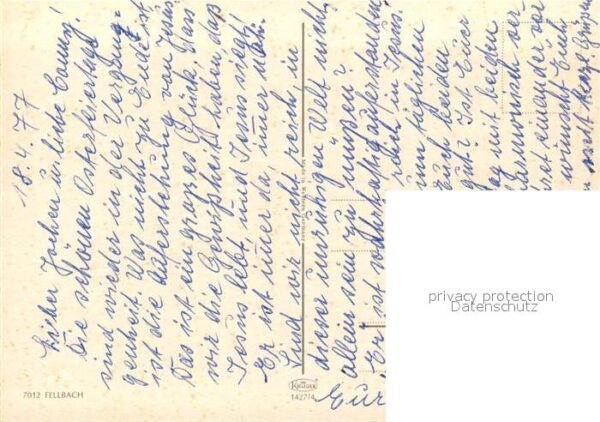 18.4.77
Lieber Jochen u. liebe Conny!
Die schönen Osterfeiertage
sind wieder in der Vergang-
genheit. Was nicht zu Ende ist
ist die Auferstehung von Jesus
Das ist ein grozes Glück, dass
wir die Gewißheit haben das
Jesus lebt und Jesus siegt.
Er ist immer da, immer nah.
Sind wir nicht reich, in
dieser unruhigen Welt nicht
allein sein zu müßen?
Er ist wahrhaftig auferstanden
reich in Jesus!
im täglichen
Euch beiden
gut? Ist Euer
mit beiden
harmonisch
ist einander
wünscht Euch
Eur
7012 FELLBACH
KRÜGER
1427/4
Made in Western Germany
privacy protection
Datenschutz